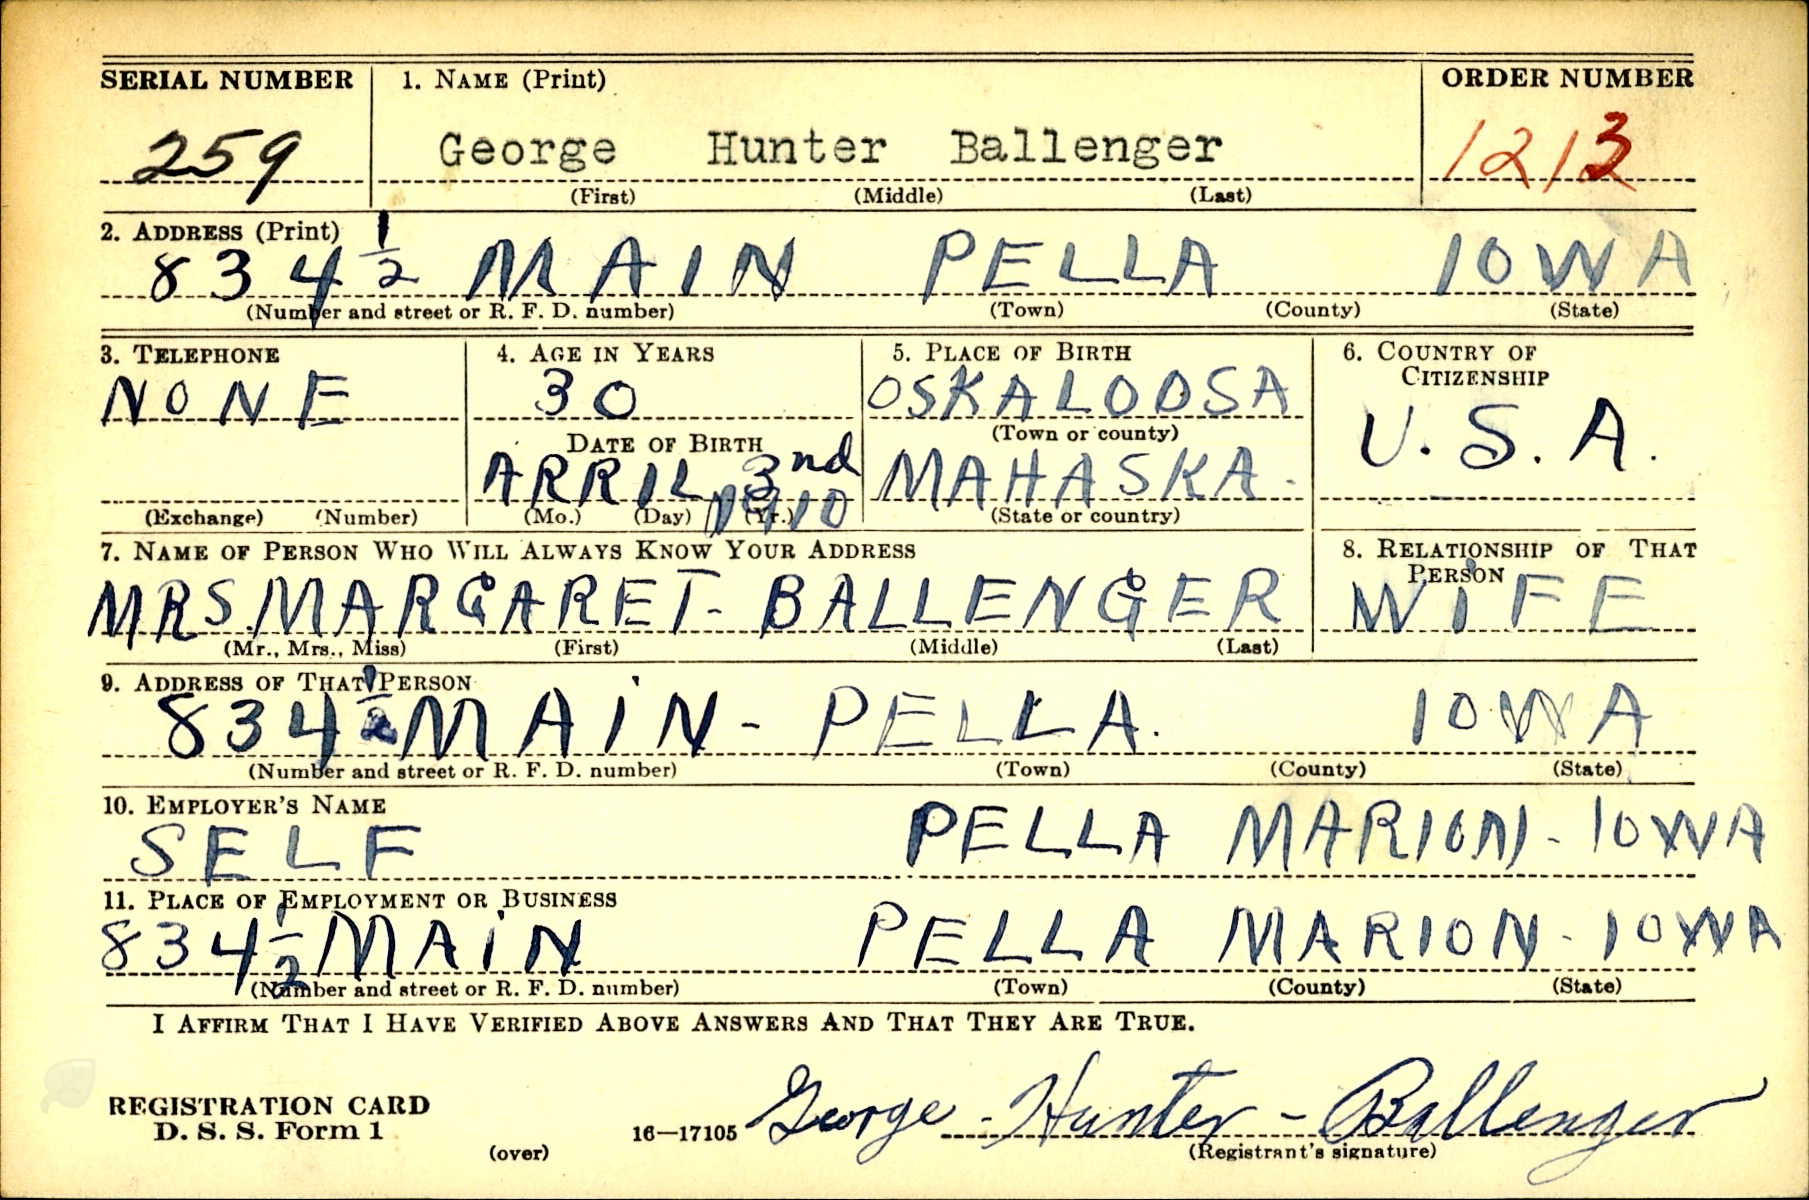 SERIAL NUMBER 1. NAME (Print) ORDER NUMBER
259 George Hunter Ballenger 1213
(First) (Middle) (Last)
2. ADDRESS (Print)
834 1/2 MAIN PELLA IOWA
(Number and street or R. F. D. number) (Town) (County) (State)
3. TELEPHONE 4. AGE IN YEARS 5. PLACE OF BIRTH 6. COUNTRY OF
CITIZENSHIP
NONE 30 OSKALOOSA U.S.A.
DATE OF BIRTH (Town or county)
ARRIL 3nd 1910 MAHASKA.
(Exchange) (Number) (Mo.) (Day) (Yr.) (State or country)
7. NAME OF PERSON WHO WILL ALWAYS KNOW YOUR ADDRESS 8. RELATIONSHIP OF THAT
PERSON
MRS. MARGARET - BALLENGER WIFE
(Mr., Mrs., Miss) (First) (Middle) (Last)
9. ADDRESS OF THAT PERSON
834 1/2 MAIN - PELLA. IOWA
(Number and street or R. F. D. number) (Town) (County) (State)
10. EMPLOYER'S NAME
SELF PELLA MARION - IOWA
11. PLACE OF EMPLOYMENT OR BUSINESS
834 1/2 MAIN PELLA MARION - IOWA
(Number and street or R. F. D. number) (Town) (County) (State)
I AFFIRM THAT I HAVE VERIFIED ABOVE ANSWERS AND THAT THEY ARE TRUE.
REGISTRATION CARD
D. S. S. Form 1
(over) 16—17105 George - Hunter - Ballenger
(Registrant's signature)